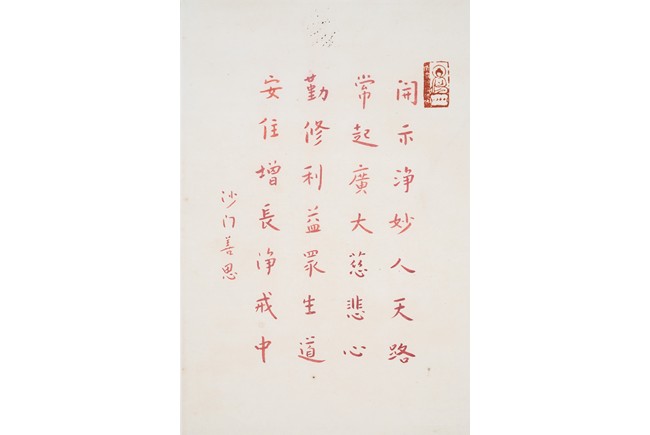 開示淨妙人天路
常起廣大慈悲心
勤修利益眾生道
安住增長淨戒中
沙门善思